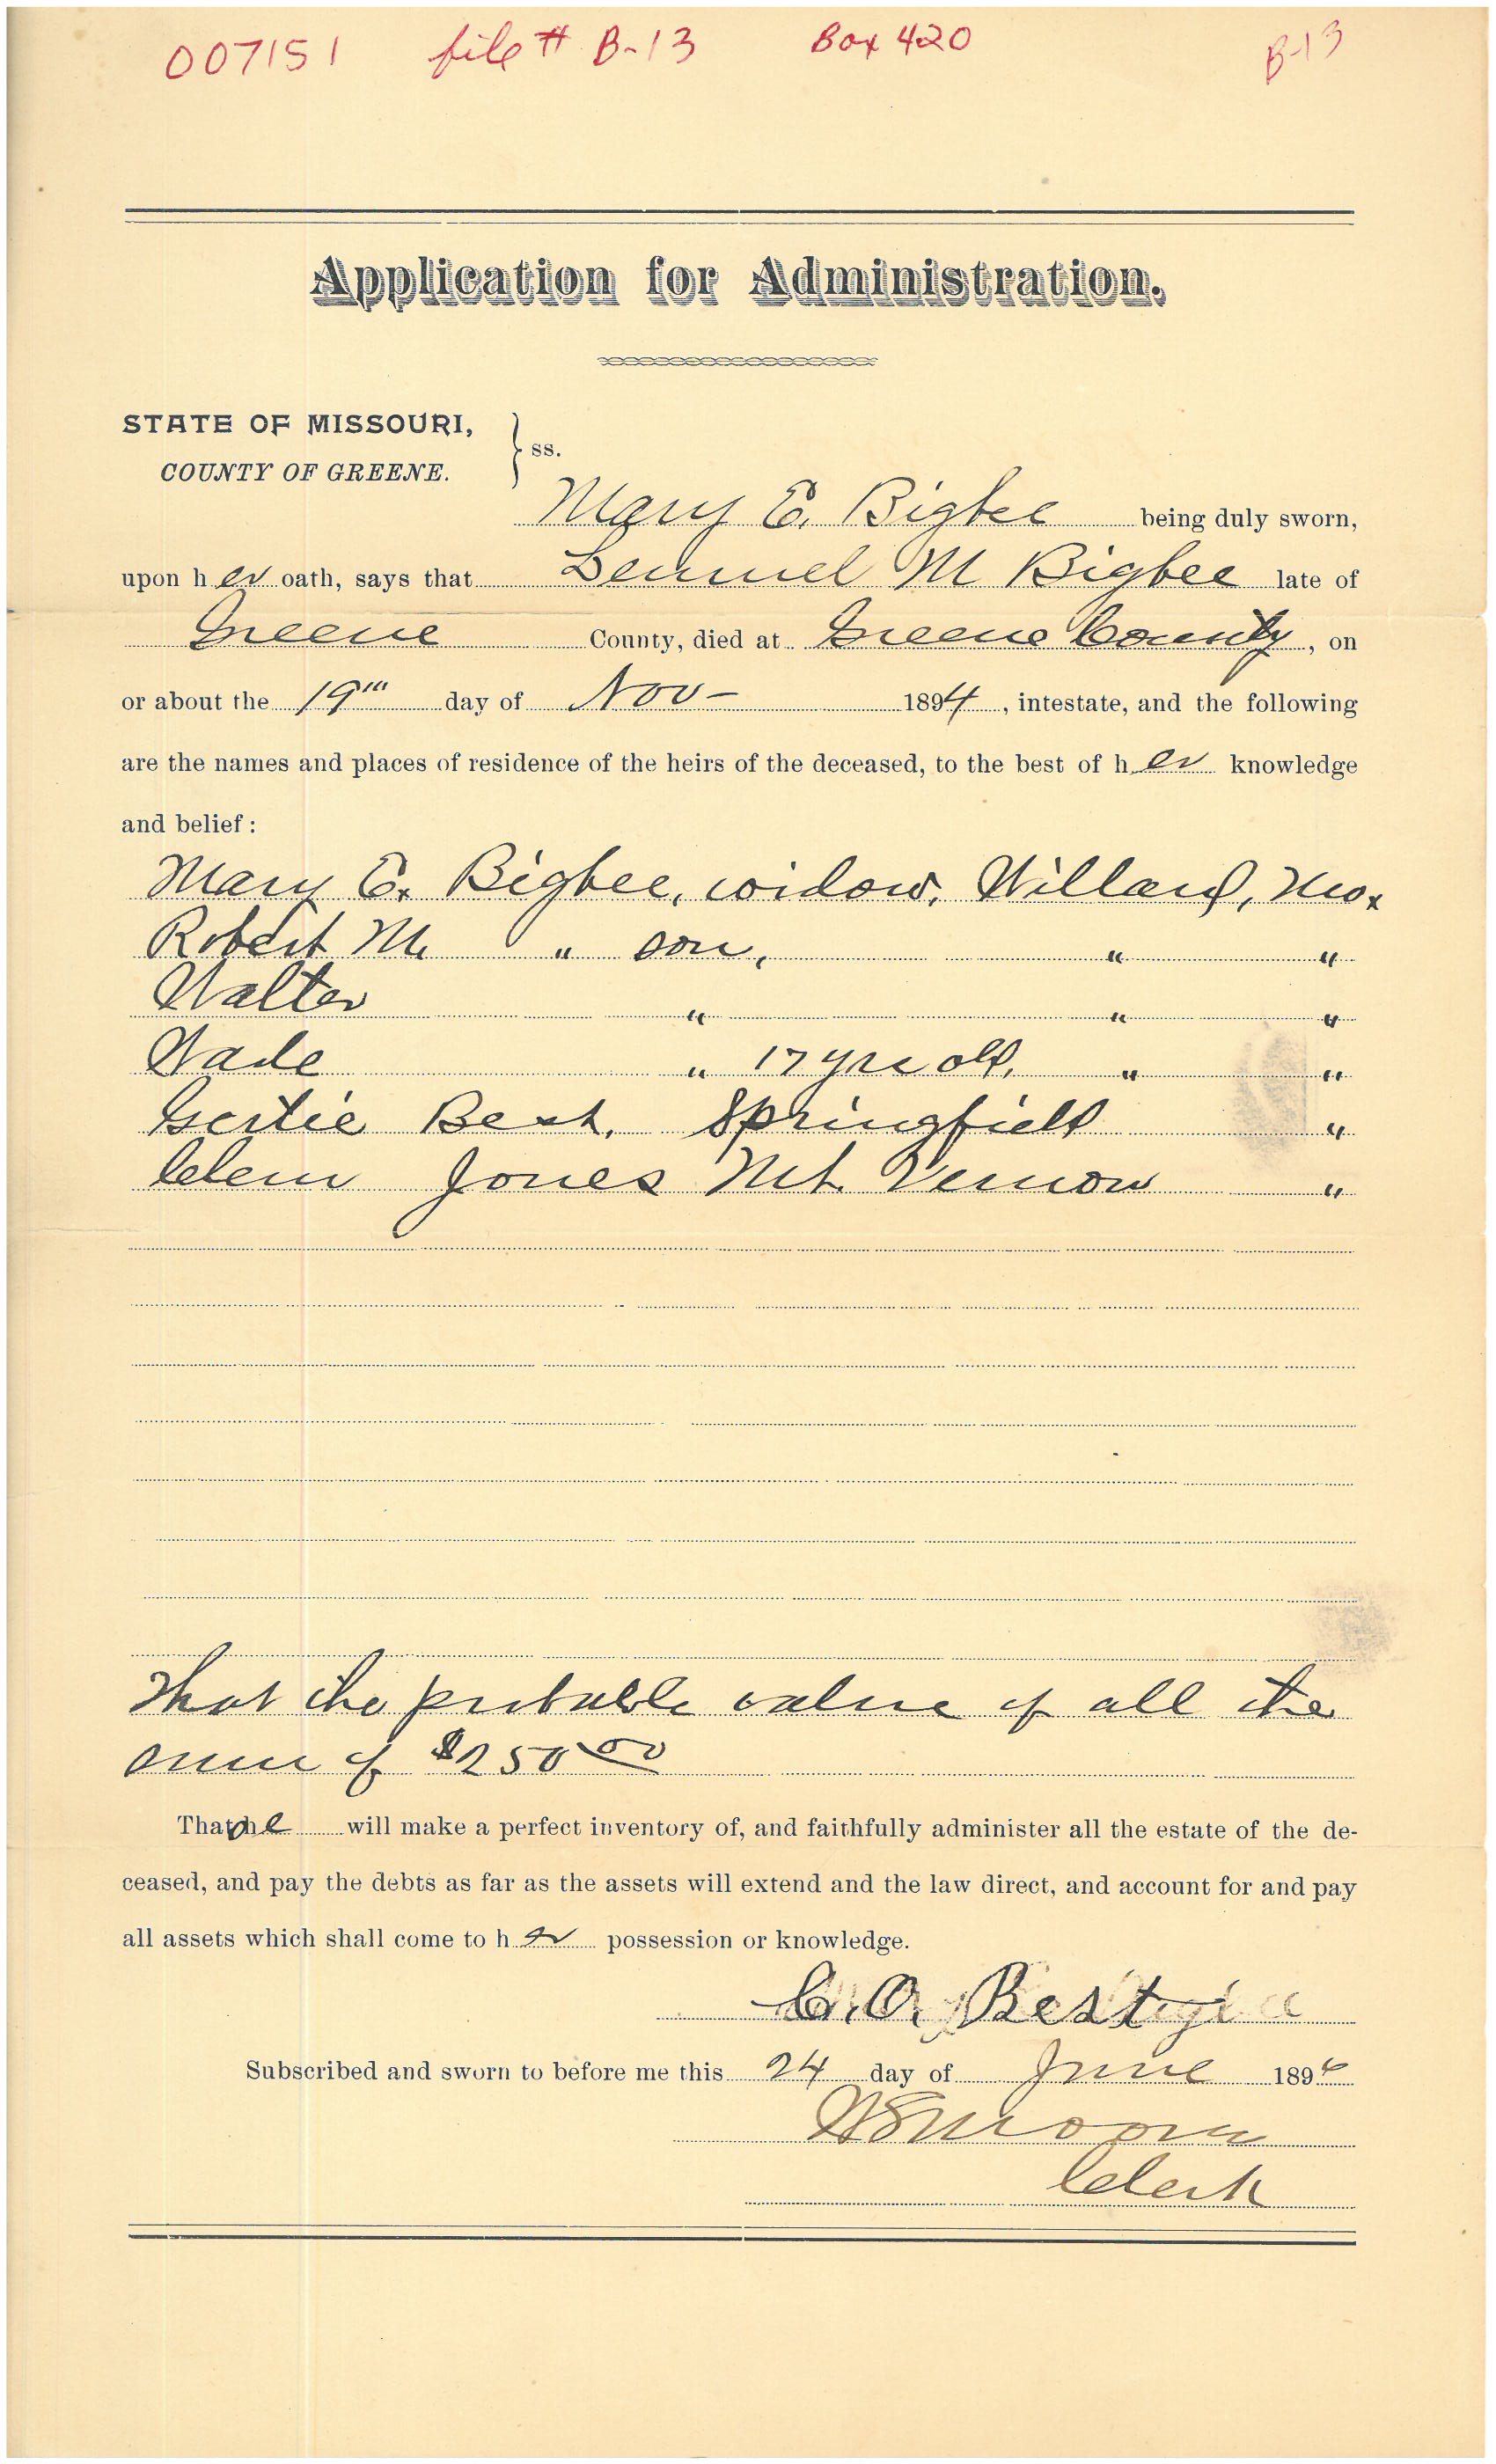 007151 file # B-13 Box 420 B-13
Application for Administration.
STATE OF MISSOURI,
COUNTY OF GREENE. } ss.
Mary E. Bigbee being duly sworn,
upon her oath, says that Lemuel M Bigbee late of
Greene County, died at Greene County, on
or about the 19th day of Nov- 1894, intestate, and the following
are the names and places of residence of the heirs of the deceased, to the best of her knowledge
and belief:
Mary E. Bigbee, widow, Willard, Mo.
Robert M. " son, " "
Walter " " "
Wade " 17 yrs old, " "
Gertie Best, Springfield "
Clem Jones Mt. Vernon "
That the probable value of all the
sum of $250.00
That she will make a perfect inventory of, and faithfully administer all the estate of the de-
ceased, and pay the debts as far as the assets will extend and the law direct, and account for and pay
all assets which shall come to her possession or knowledge.
C. O. Best
Subscribed and sworn to before me this 24 day of June 1896
Clerk